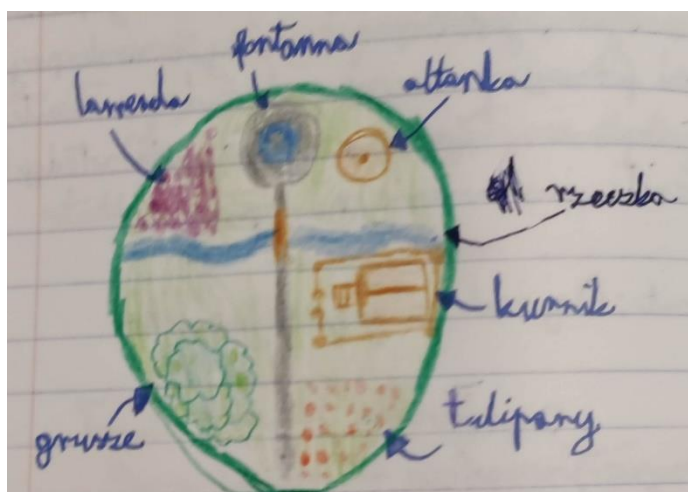 fontanna
lawenda
altanka
rzeczka
kurnik
tulipany
grusze